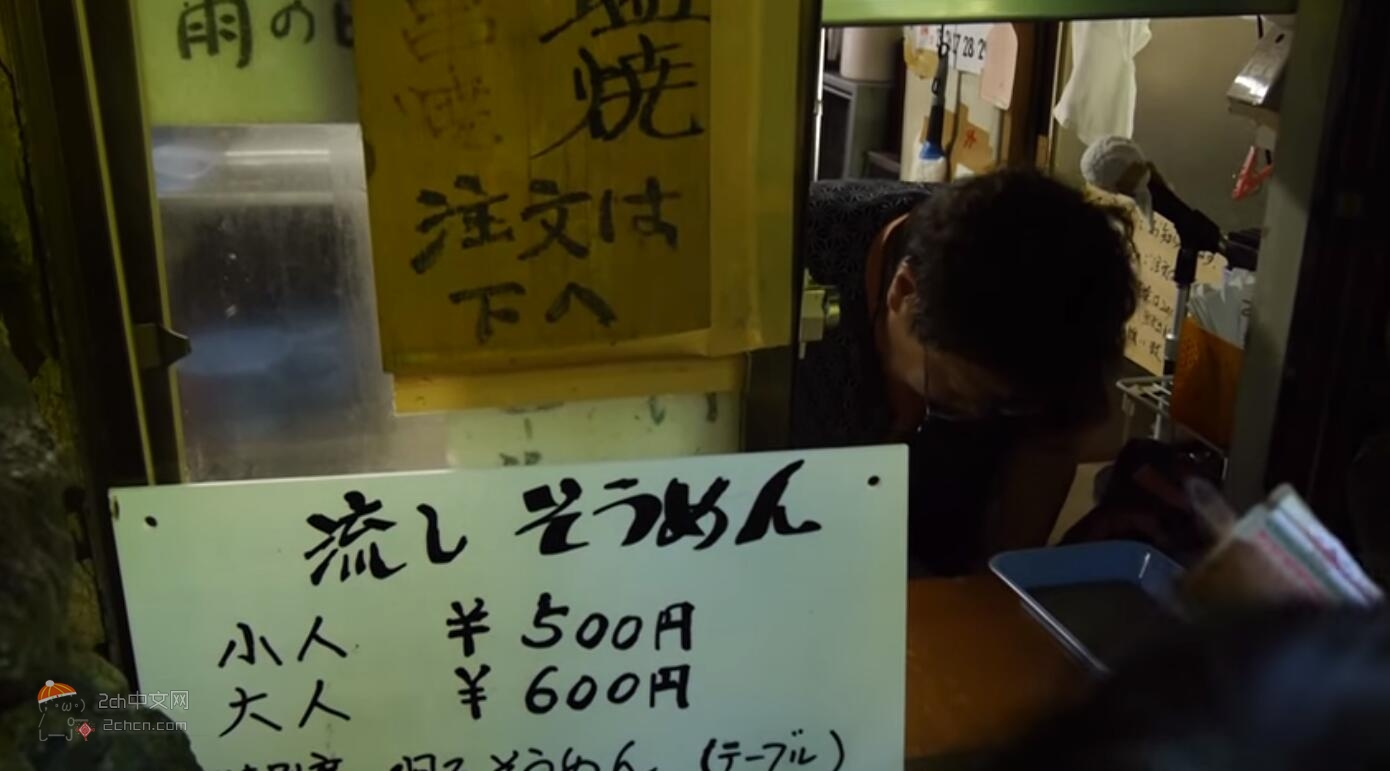 雨の日
串 塩
焼 焼
注文は
下へ
流しそうめん
小人 ¥500円
大人 ¥600円
そうめん (テーブル)
2ch中文网
2chcn.com